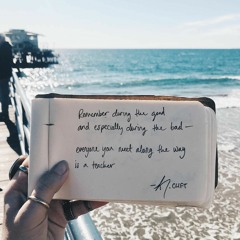 Remember during the good
and especially during the bad—
everyone you meet along the way
is a teacher